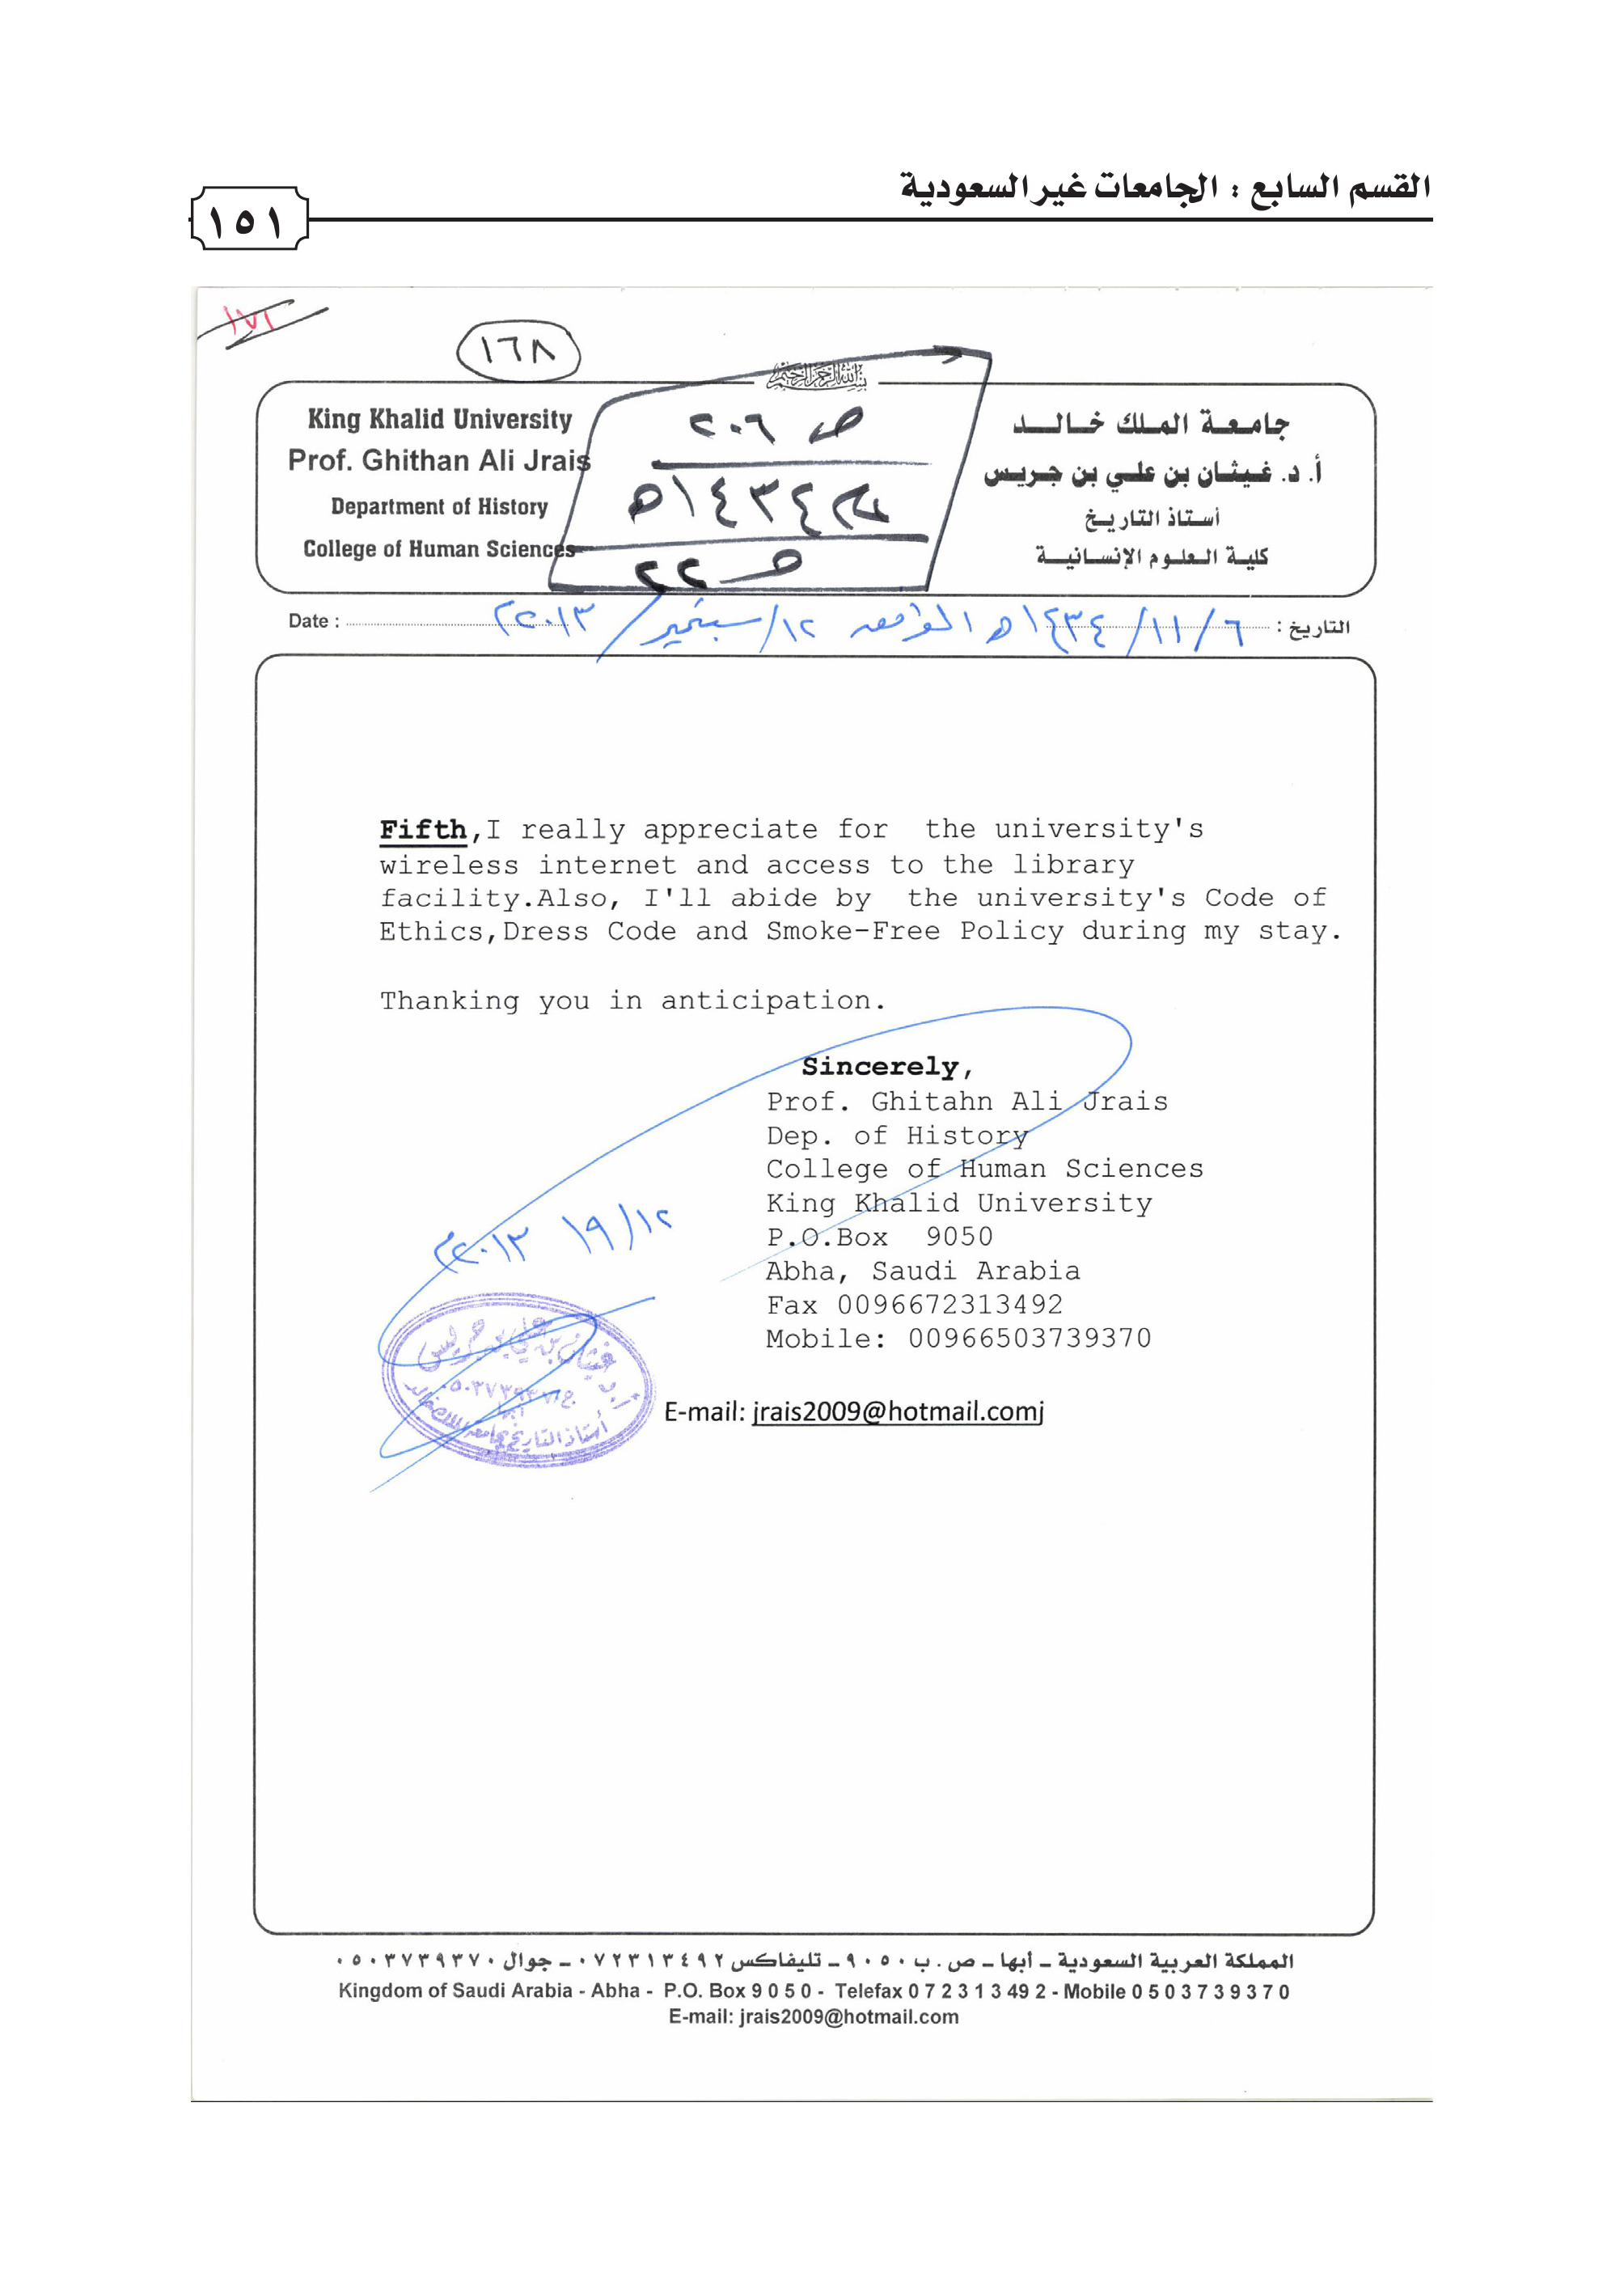 القسم السابع : الجامعات غير السعودية
١٥١
١٧١
١٦٨
بسم الله الرحمن الرحيم
King Khalid University
Prof. Ghithan Ali Jrais
Department of History
College of Human Sciences
ص ٢٠٦
١٤٣٤هـ
ص ٢٢
جامعة الملك خالد
أ. د. غيثان بن علي بن جريس
أستاذ التاريخ
كلية العلوم الإنسانية
التاريخ : ٦ / ١١ / ١٤٣٤هـ الموافق ١٢/سبتمبر/٢٠١٣م
Date :
Fifth,I really appreciate for  the university's
wireless internet and access to the library
facility.Also, I'll abide by  the university's Code of
Ethics,Dress Code and Smoke-Free Policy during my stay.
Thanking you in anticipation.
Sincerely,
Prof. Ghitahn Ali Jrais
Dep. of History
College of Human Sciences
King Khalid University
P.O.Box  9050
Abha, Saudi Arabia
Fax 0096672313492
Mobile: 00966503739370
١٢/ ٩\ ٢٠١٣م
أ.د غيثان بن علي بن جريس
ج ٠٥٠٣٧٣٩٣٧٠
أبها
أستاذ التاريخ بجامعة الملك خالد
E-mail: jrais2009@hotmail.comj
المملكة العربية السعودية ـ أبها ـ ص . ب ٩٠٥٠ ـ تليفاكس ٠٧٢٣١٣٤٩٢ ـ جوال ٠٥٠٣٧٣٩٣٧٠
Kingdom of Saudi Arabia - Abha -  P.O. Box 9 0 5 0 -  Telefax 0 7 2 3 1 3 49 2 - Mobile 0 5 0 3 7 3 9 3 7 0
E-mail: jrais2009@hotmail.com